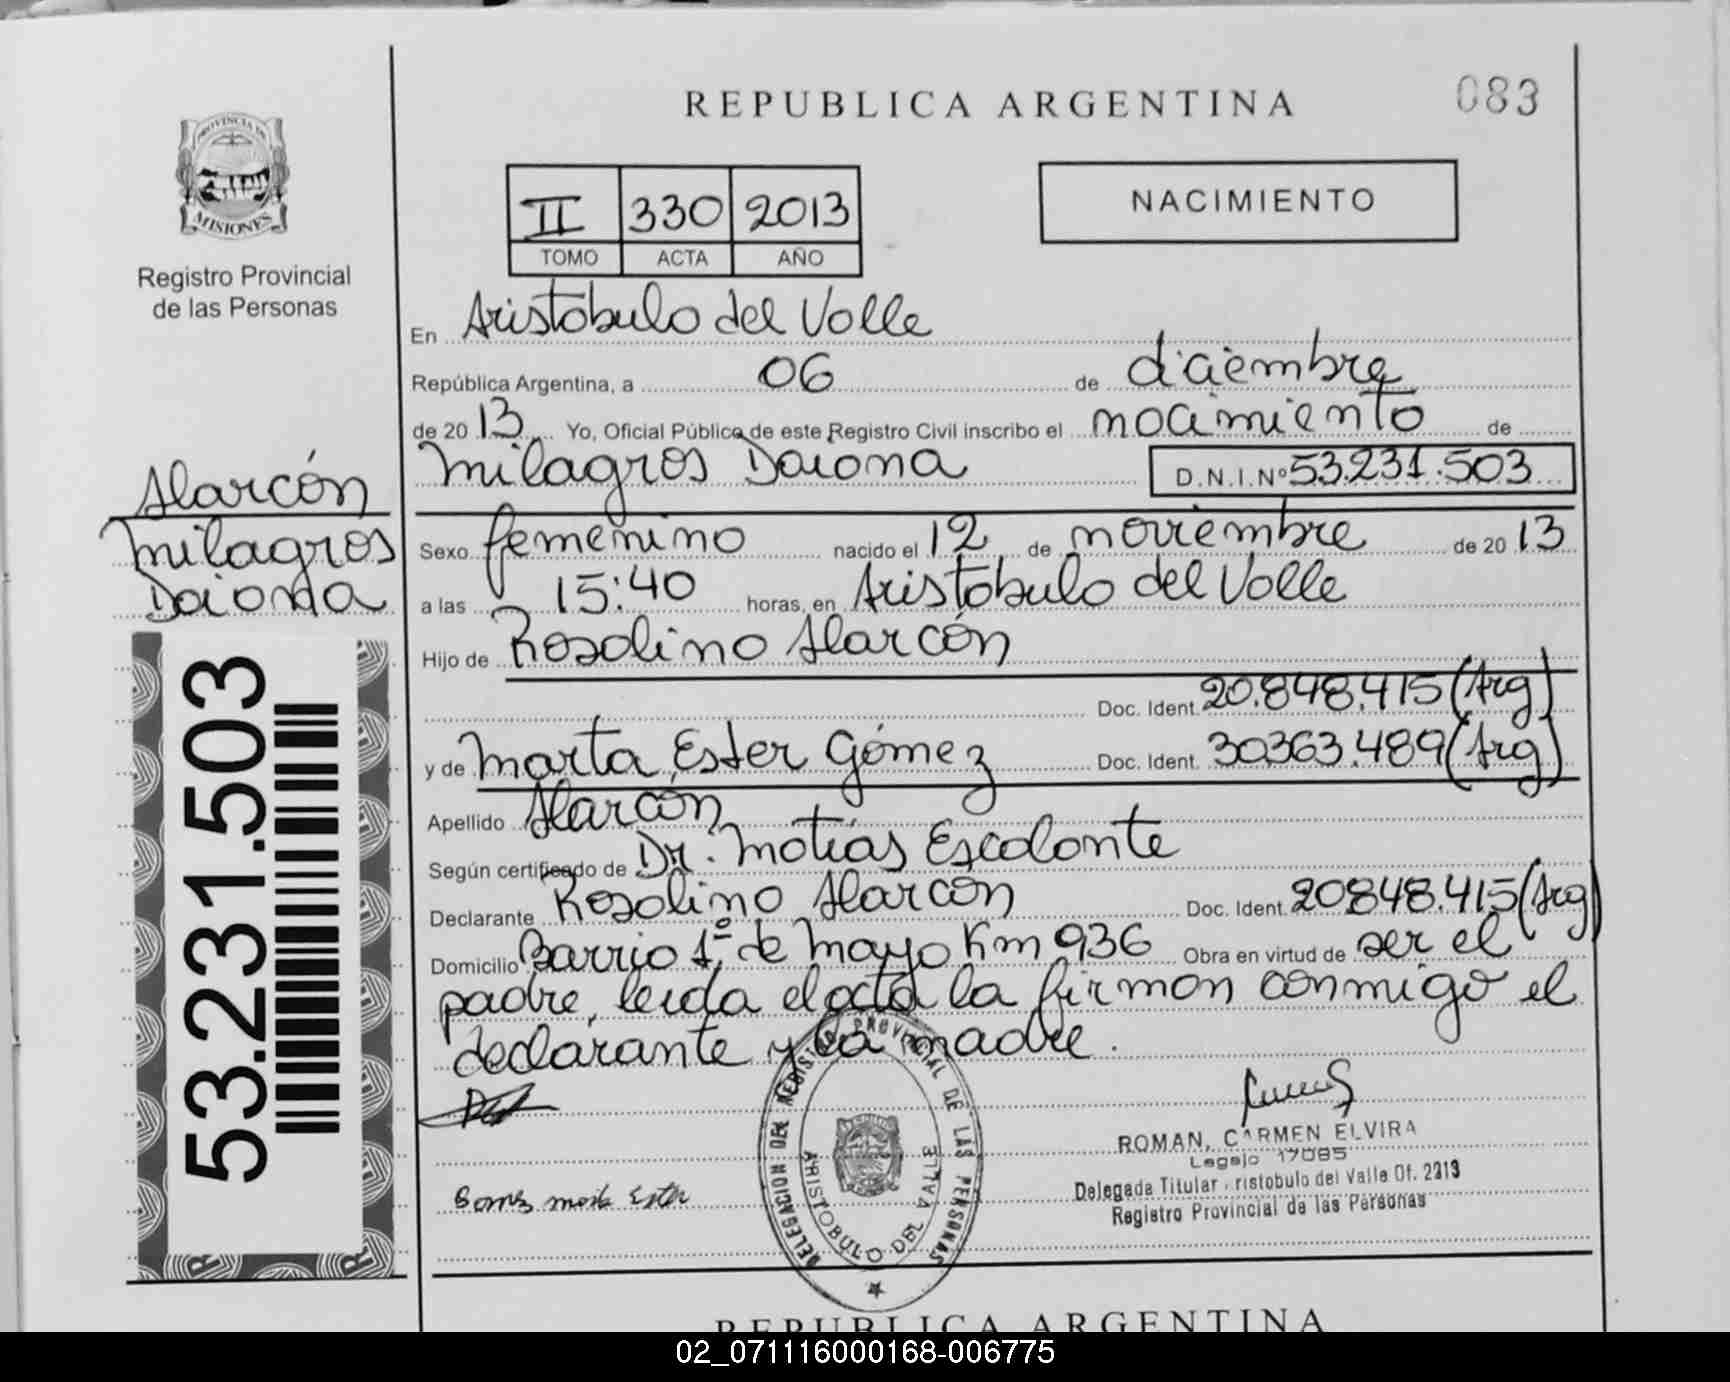 083
REPUBLICA ARGENTINA
PROVINCIA DE
MISIONES
Registro Provincial
de las Personas
II 330 2013
TOMO ACTA AÑO
NACIMIENTO
En Aristóbulo del Valle
República Argentina, a 06 de diciembre
de 20 13 Yo, Oficial Público de este Registro Civil inscribo el nacimiento de
Milagros Daiana D.N.I.Nº 53.231.503
Alarcón
Milagros
Daiana
Sexo femenino nacido el 12 de noviembre de 20 13
a las 15:40 horas, en Aristóbulo del Valle
Hijo de Rosolino Alarcón
Doc. Ident. 20.848.415 (Arg)
y de Marta Ester Gómez Doc. Ident. 30363.489 (Arg)
Apellido Alarcón
Según certificado de Dr. Matías Escalante
Declarante Rosolino Alarcón Doc. Ident. 20848.415 (Arg)
Domicilio Barrio 1º de Mayo Km 936 Obra en virtud de ser el
padre, leída el acta la firman conmigo el
declarante y la madre.
53.231.503
DELEGACION DEL REGISTRO PROVINCIAL DE LAS PERSONAS
ARISTOBULO DEL VALLE
Gomez Marta Ester
ROMAN, CARMEN ELVIRA
Legajo 17085
Delegada Titular ristobulo del Valle Of. 2213
Registro Provincial de las Personas
REPUBLICA ARGENTINA
02_071116000168-006775